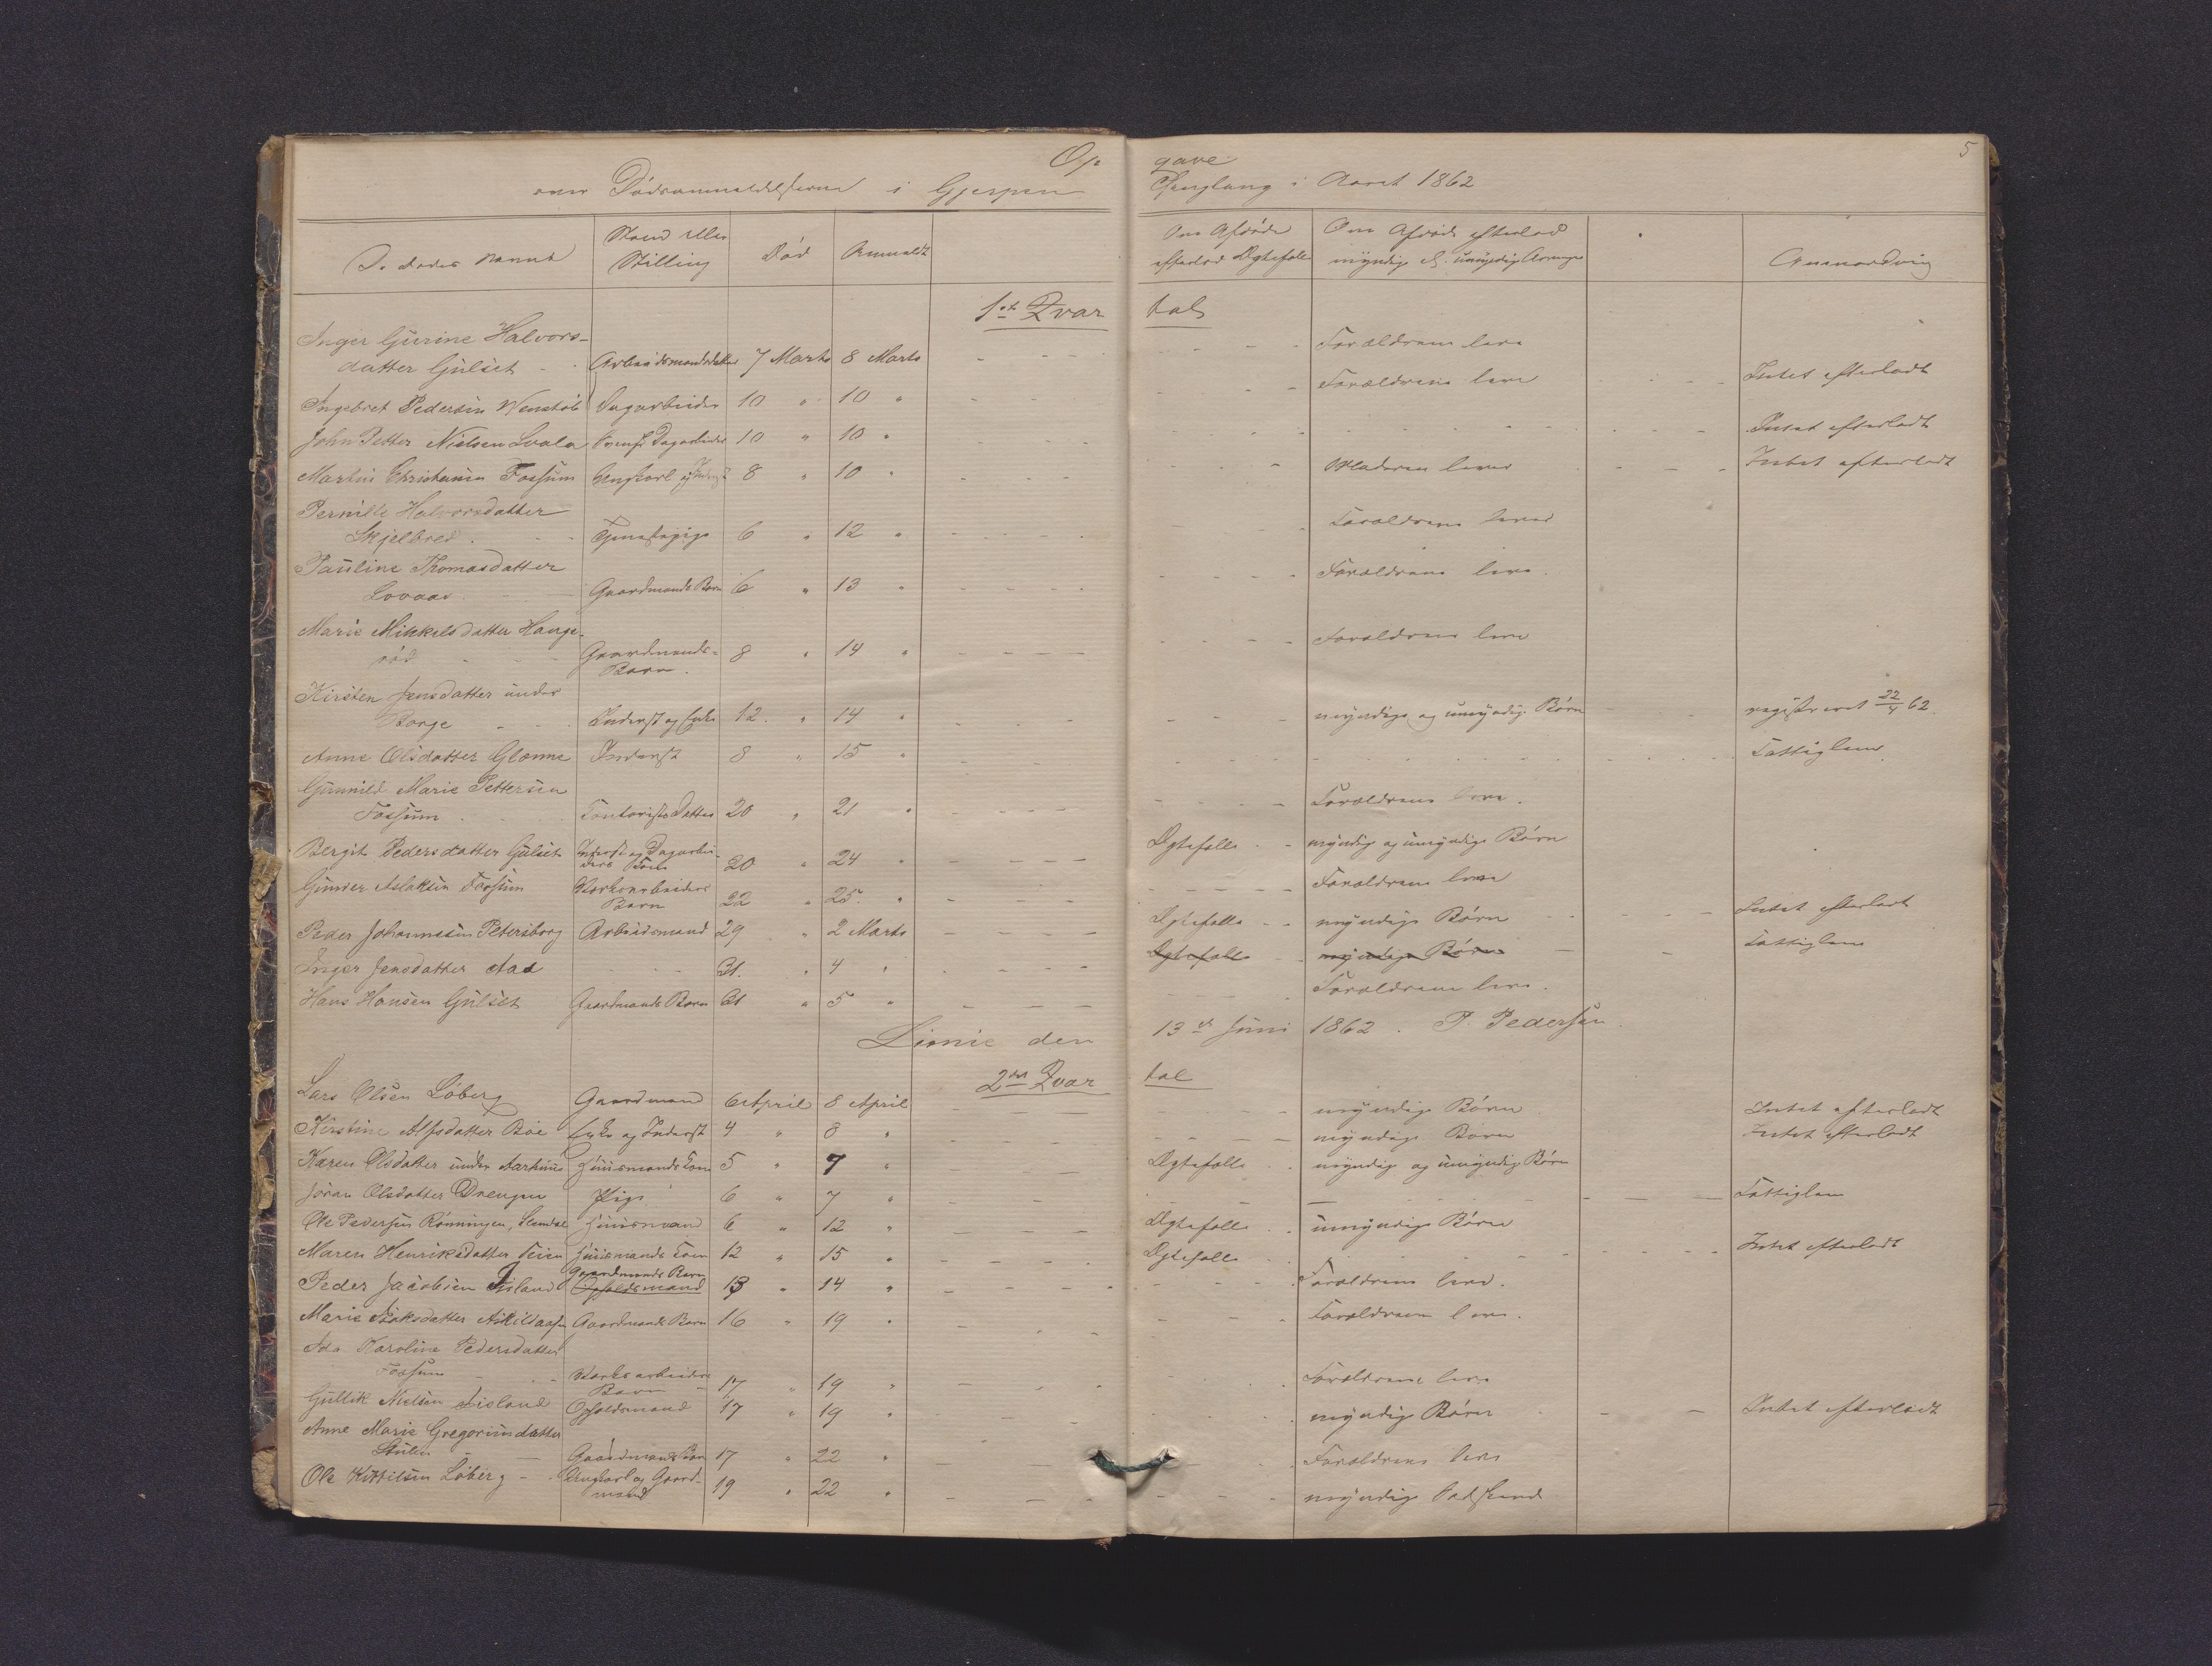 Op gave 5
over Dødsanmeldelserne i Gjerpen Thinglaug i Aaret 1862
De dødes Navne Stand eller Stilling Død Anmeldt Om Afdøde efterlod Ægtefælle Om Afdøde efterlod myndige el. umyndige Arvinger Anmærkning
1ste Qvar tal
Inger Gurine Halvors-
datter Gulset Arbeidsmandsdatter 7 Marts 8 Marts Forældrene leve
Ingebret Pedersen Wenstøb Dagarbeider 10 " 10 " Forældrene leve Intet efterladt
John Petter Nielsen Dagarbeider 10 " 10 " Intet efterladt
Martin Christensen Fossum Ungkarl og 8 " 10 " Moderen lever Intet efterladt
Pernille Halvorsdatter
Skjelbred Tjenestepige 6 " 12 " Forældrene lever
Pauline Thomasdatter
Lovaas Gaardmands Barn 6 " 13 " Forældrene leve.
Marie Mikkelsdatter Hauge-
rød Gaardmands-
Barn. 8 " 14 " Forældrene leve
Kirsten Jensdatter under
Borge Inderst og Enke 12 " 14 " myndige og umyndige Børn registreret 22/4 62
Anne Olsdatter Glenne Inderst 8 " 15 " Fattiglem
Gunnild Marie Pettersen
Fossum Contorists Datter 20 " 21 " Forældrene leve.
Bergit Pedersdatter Gulset Inderst og Dagarbei-
ders Kone 20 " 24 " Ægtefælle myndige og umyndige Børn
Gunder Aslaksen Fossum Værksarbeiders
Barn 22 " 25. " Forældrene leve
Peder Johannessen Petersborg Arbeidsmand 29 " 2 Marts Ægtefælle myndige Børn Intet efterladt
Inger Jensdatter Aas 31. " 4 " Ægtefælle myndige Børn Fattiglem
Hans Hansen Gulset Gaardmands Barn 31 " 5 " Forældrene leve.
Limie den 13de Juni 1862. P. Pedersen
2det Qvar tal
Lars Olsen Løberg Gaardmand 6 April 8 April myndige Børn Intet efterladt
Kirstine Alfsdatter Bøe Enke og Inderst 4 " 8 " myndige Børn Intet efterladt
Karen Olsdatter under Aarhuus Huusmands Kone 5 " 7 " Ægtefælle myndige og umyndige Børn
Jøran Olsdatter Drengen Pige 6 " 7 " Fattiglem
Ole Pedersen Rønningen, Huusmand 6 " 12 " Ægtefælle umyndige Børn
Maren Henriksdatter Huusmands Kone 12 " 15 " Ægtefælle Intet efterladt
Gaardmands Barn
Peder Jacobsen Island Opholdsmand 13 " 14 " Forældrene leve.
Marie Isaksdatter Gaardmands Barn 16 " 19 " Forældrene leve.
Ida Karoline Pedersdatter
Fossum Værksarbeiders
Barn 17 " 19 " Forældrene leve
Gullik Nielsen Opholdsmand 17 " 19 " myndige Børn Intet efterladt
Anne Marie Gregoriusdatter
Stulen Gaardmands Barn 17 " 22 " Forældrene leve
Ole Kittilsen Løberg Ungkarl og Gaard-
mand 19 " 22 " myndige Sødskend